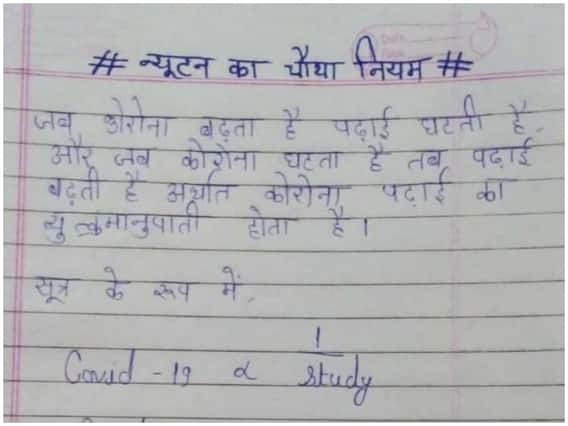 # न्यूटन का चौथा नियम #
जब कोरोना बढ़ता है पढ़ाई घटती है,
और जब कोरोना घटता है तब पढ़ाई
बढ़ती है अर्थात कोरोना पढ़ाई का
व्युत्क्रमानुपाती होता है।
सूत्र के रूप में,
Covid - 19 ∝ 1
study